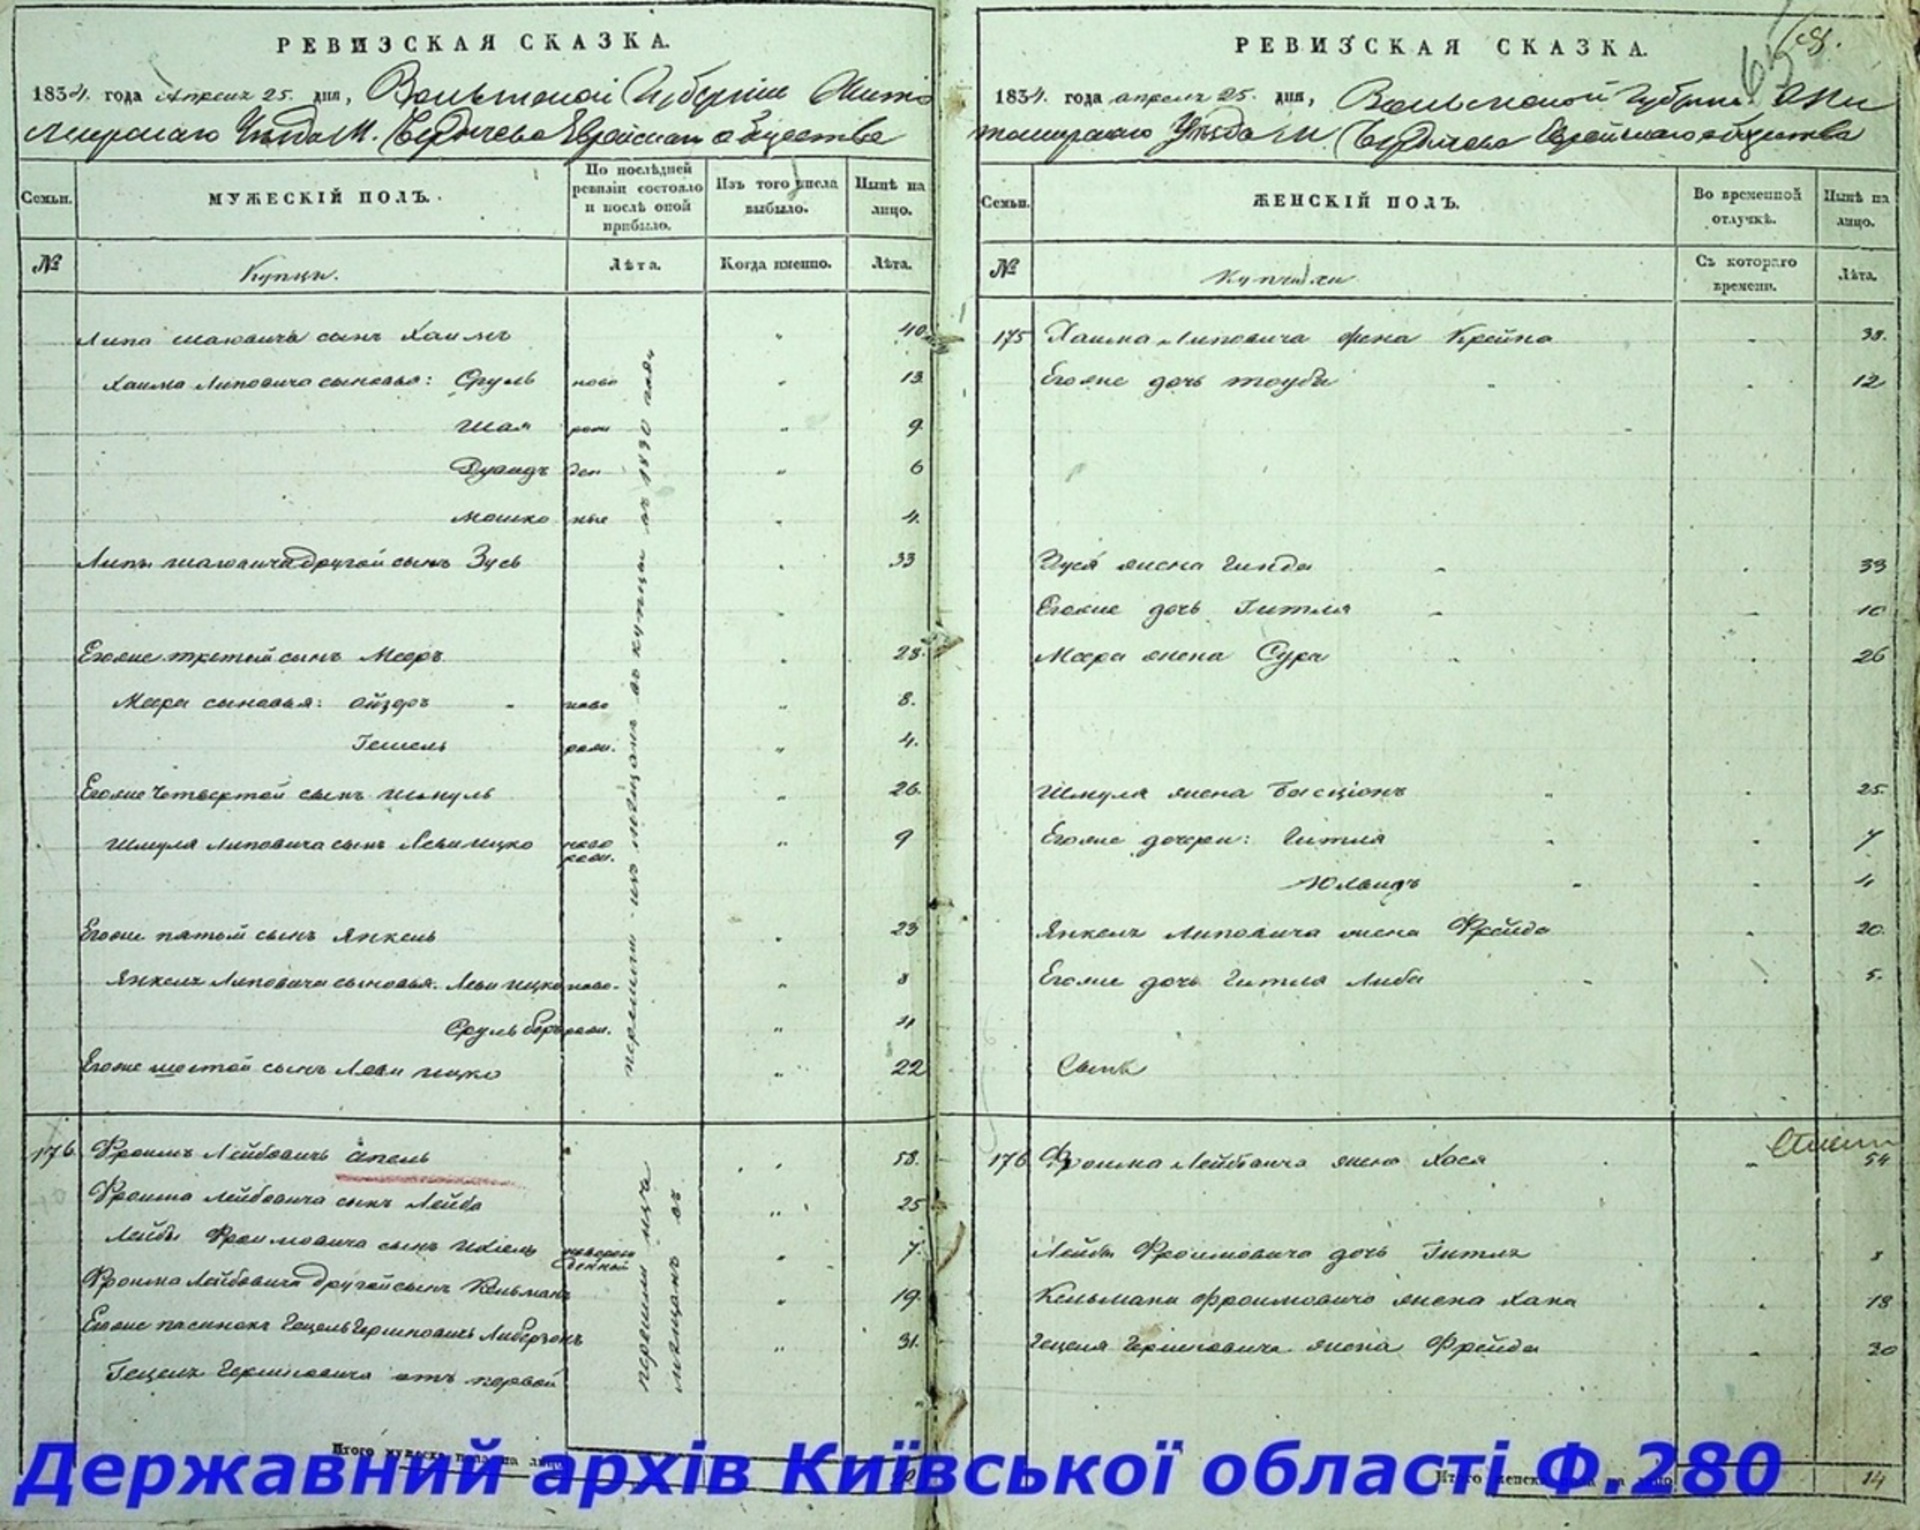 РЕВИЗСКАЯ СКАЗКА.
1834. года Апреля 25. дня, Волынской Губернии Жито
мирскаго Уезда М. Бердичева Еврейскаго общества
Семьи.
МУЖЕСКІЙ ПОЛЪ.
По послѣдней ревизіи состояло и послѣ оной прибыло.
Изъ того числа выбыло.
Нынѣ на лицо.
№
Купцы.
Лѣта.
Когда именно.
Лѣта.
Липы Шаювича сынъ Хаимъ 40
Хаима Липовича сыновья: Сруль ново 13
Шая рож 9
Дувидъ ден 6
Мошко ные 4.
Липы Шаювича другой сынъ Зусь 33
Егоже третий сынъ Мееръ 28.
Меера сыновья: Ойзеръ ново 8.
Гешель рож. 4.
Егоже четвертой сынъ Шмуль 26.
Шмуля Липовича сынъ Левиицко ново рож. 9
Егоже пятой сынъ Янкель 23
Янкеля Липовича сыновья. Левиицко ново- 8
Сруль Беръ рож.
Егоже шестой сынъ Леви ицко 22
перешли изъ мещанъ въ купцы въ 1830 году
176 Фроимъ Лейбовичъ Апель 58.
Фроима Лейбовича сынъ Лейба 25
Лейбы Фроимовича сынъ Ихіель новорож денной 7.
Фроима Лейбовича другой сынъ Кельманъ 19.
Егоже пасынокъ Гецель Гершковичъ Либерзонъ 31.
Гецеля Гершковича отъ первой
перешли изъ мещанъ въ
Итого мужеска пола на лицо
РЕВИЗСКАЯ СКАЗКА.
1834. года апреля 25. дня, Волынской Губерніи Жи
томирскаго Уезда М. Бердичева Еврейскаго общества
Семьи.
ЖЕНСКІЙ ПОЛЪ.
Во временной отлучкѣ.
Нынѣ на лицо.
№
Купчихи
Съ котораго времени.
Лѣта.
175 Хаима Липовича жена Крейна 38.
Егоже дочь Тоуба 12
Зуся жена Гинда 33
Егоже дочь Гитля 10
Меера жена Сура 26
Шмуля жена Басціонъ 25.
Егоже дочери: Гитля 7
4
Янкеля Липовича жена Фрейда 20.
Егоже дочь Гитля Либа 5.
176 Фроима Лейбовича жена Хася 54
Лейбы Фроимовича дочь Гитля 8
Кельмана Фроимовича жена Хана 18
Гецеля Гершковича жена Фрейда 30
Итого женска пола на лицо 14
Державний архів Київської області Ф.280